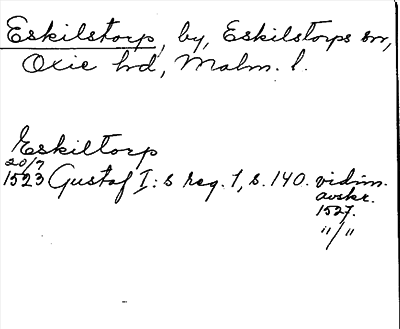 Eskilstorp, by, Eskilstorps sn,
Oxie hrd, Malm. l.
Eskiltorp
20/7
1523 Gustaf I:s reg. 1, s. 140. vidim.
avskr.
1527.
"/"